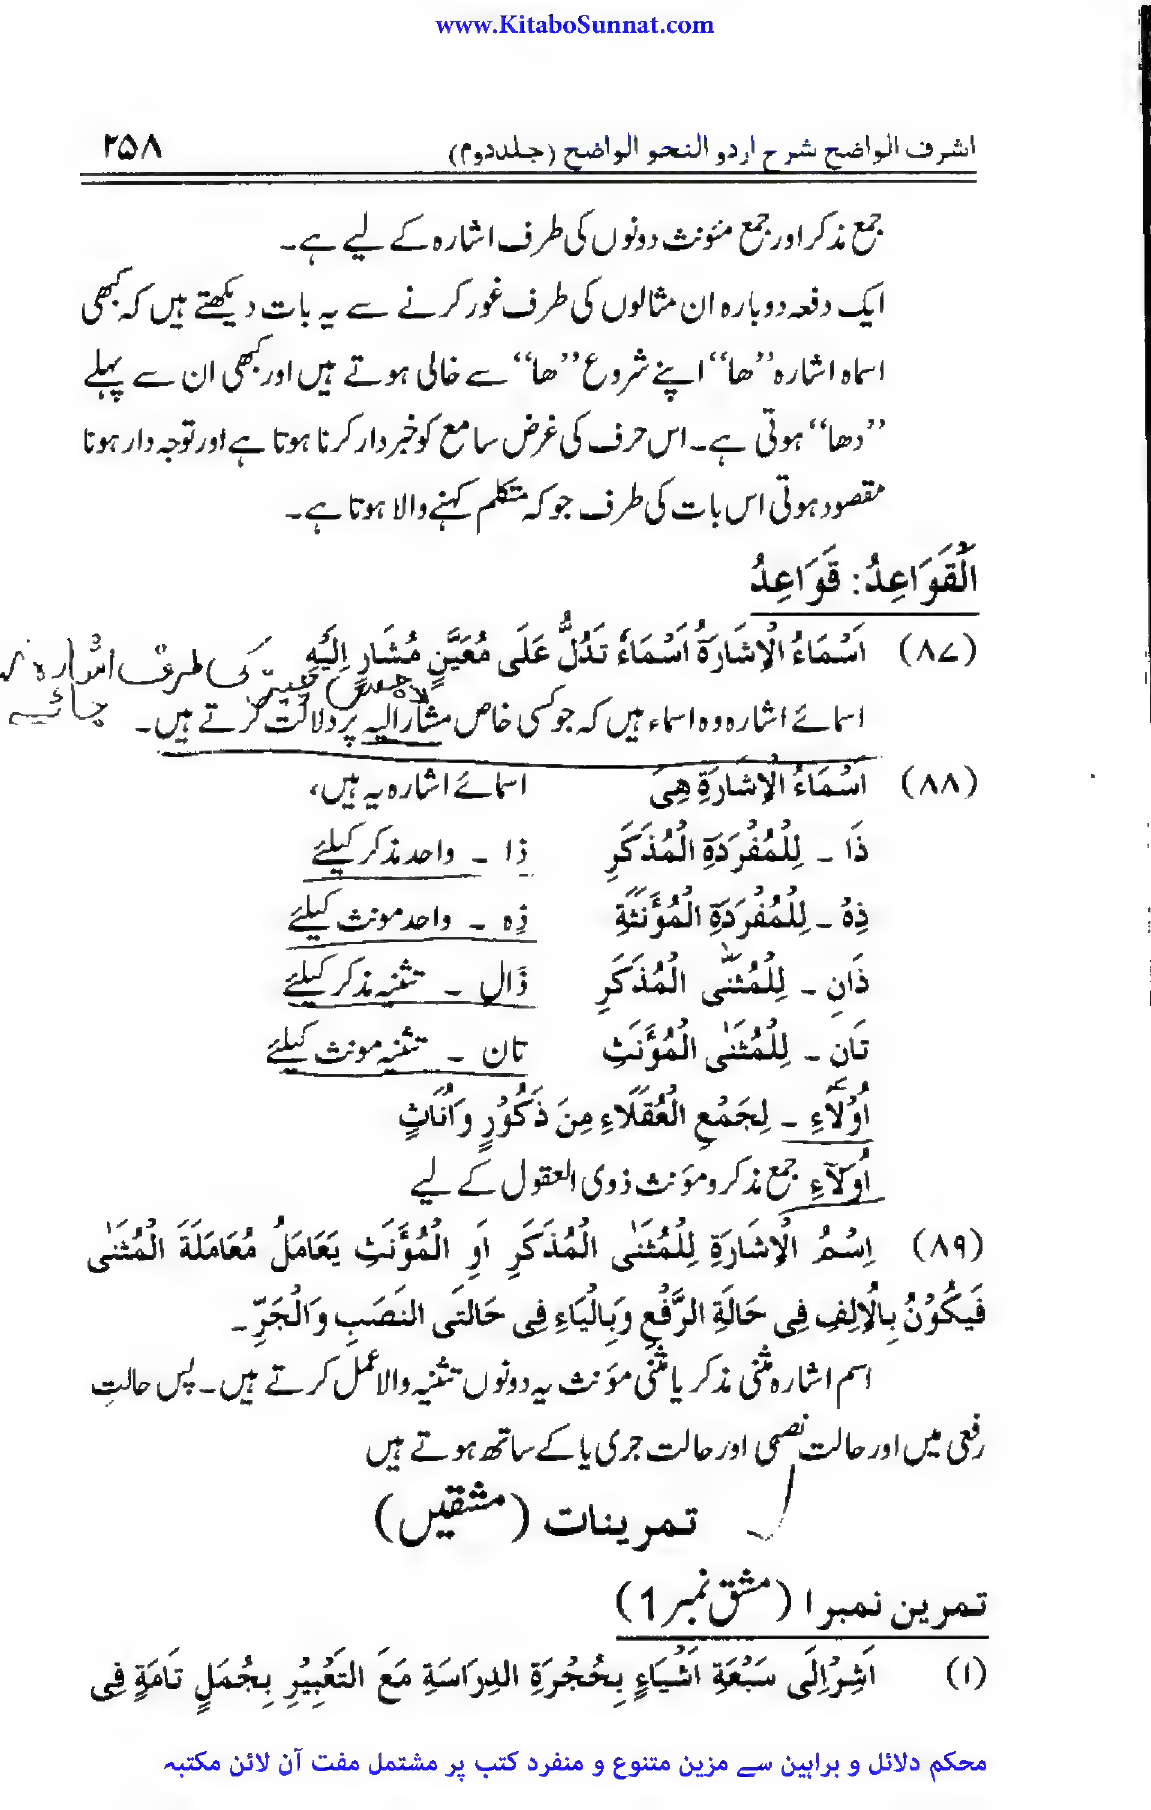 www.KitaboSunnat.com
اشرف الواضح شرح اردو النحو الواضح (جلددوم) ۲۵۸
جمع مذکر اور جمع مئونث دونوں کی طرف اشارہ کے لیے ہے۔
ایک دفعہ دوبارہ ان مثالوں کی طرف غور کرنے سے یہ بات دیکھتے ہیں کہ کبھی
اسماہ اشارہ ’’ھا‘‘ اپنے شروع ’’ھا‘‘ سے خالی ہوتے ہیں اور کبھی ان سے پہلے
’’دھا‘‘ ہوتی ہے۔ اس حرف کی غرض سامع کو خبردار کرنا ہوتا ہے اور توجہ دار ہونا
مقصود ہوتی اس بات کی طرف جو کہ متکلم کہنے والا ہوتا ہے۔
اَلْقَوَاعِدُ: قَوَاعِدُ
(۸۷) اَسْمَاءُ الْاِشَارَةُ اَسْمَاءٌ تَدُلُّ عَلٰی مُعَيَّنٍ مُشَارٍ اِلَيْهِ
کی طرف اشارہ کیا
جائے
اسمائے اشارہ وہ اسماء ہیں کہ جو کسی خاص مشارالیہ پر دلالت کرتے ہیں۔
(۸۸) اَسْمَاءُ الْاِشَارَةِ هِیَ اسمائے اشارہ یہ ہیں،
ذَا ۔ لِلْمُفْرَدَةِ الْمُذَكَّرِ ذا ۔ واحد مذکر کیلئے
ذِهْ ۔ لِلْمُفْرَدَةِ الْمُؤَنَّثَةِ ذِہ ۔ واحد مونث کیلئے
ذَانِ ۔ لِلْمُثَنّٰی الْمُذَكَّرِ ذَال ۔ تثنیہ مذکر کیلئے
تَانِ ۔ لِلْمُثَنٰی الْمُؤَنَّثِ تان ۔ تثنیہ مونث کیلئے
اُوْلَاءِ ۔ لِجَمْعِ الْعُقَلَاءِ مِنَ ذَكُوْرٍ وَاُنَاثٍ
اُوْلَآءِ جمع مذکر و مؤنث ذوی العقول کے لیے
(۸۹) اِسْمُ الْاِشَارَةِ لِلْمُثَنٰی الْمُذَكَّرِ اَوِ الْمُؤَنَّثِ يَعَامَلُ مُعَامَلَةَ الْمُثَنٰی
فَيَكُوْنُ بِالْاِلِفِ فِی حَالَةِ الرَّفْعِ وَبِالْيَاءِ فِی حَالَتَی النَصَبِ وَالْجَرِّ۔
اسم اشارہ مثنی مذکر یا مثنی مؤنث یہ دونوں تثنیہ والا عمل کرتے ہیں۔ پس حالتِ
رفعی میں اور حالت نصبی اور حالت جری یا کے ساتھ ہوتے ہیں
تمرینات (مشقیں)
تمرین نمبر ۱ (مشق نمبر 1)
(۱) اَشِرْاِلَی سَبْعَةِ اَشْيَاءٍ بِحُجْرَةِ الدِرَاسَةِ مَعَ التَعْبِيْرِ بِجُمَلٍ تَامَةٍ فِی
محکم دلائل و براہین سے مزین متنوع و منفرد کتب پر مشتمل مفت آن لائن مکتبہ